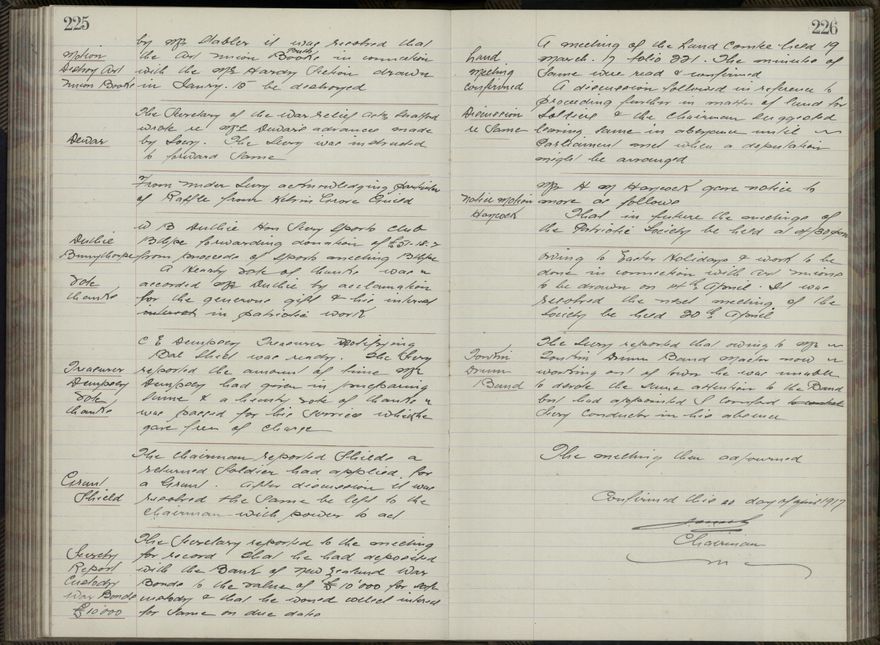 225
by Mr Stabler it was resolved that
Motion
Destroy Art
Union Books
the Art Union Books Butts in connection
with the Mr Hardy Section drawn
in Janry. 18 be destroyed
Dewar
The Secretary of the War relief Assn Stratford
wrote re Mr Dewar's advances made
by Socy. The Secy was instructed
to forward same
From Under Secy acknowledging particulars
of Raffle from Kelvin Grove Guild
Duthie
Bunnythorpe
Vote
thanks
W B Duthie Hon Secy Sports Club
B thpe forwarding donation of £51-18-7
from proceeds of Sports meeting B thpe
A Hearty vote of thanks was
accorded Mr Duthie by acclamation
for the generous gift & his interest
interest in patriotic work
Treasurer
Dempsey
Vote
thanks
C E Dempsey Treasurer Notifying
Bal Sheet was ready. The Secy
reported the amount of time Mr
Dempsey had given in preparing
same & a hearty vote of thanks
was passed for his Services which he
gave free of charge
Grant
Shield
The Chairman reported Shields a
returned Soldier had applied for
a Grant. After discussion it was
resolved the same be left to the
Chairman with power to act
Secrety
Report
Custody
War Bonds
£10000
The Secretary reported to the meeting
for record that he had deposited
with the Bank of New Zealand War
Bonds to the value of £10'000 for safe
custody & that he would collect interest
for same on due dates
226
Land
Meeting
Confirmed
A meeting of the Land Comtee held 19
March. 17 folio 221. The minutes of
same were read & confirmed
Discussion
re Same
A discussion followed in reference to
proceeding further in matter of land for
Soldiers & the Chairman suggested
leaving same in abeyance until
Parliament met when a deputation
might be arranged
Notice Motion
Haycock
Mr H M Haycock gave notice to
move as follows
That in future the meetings of
the Patriotic Society be held at
Owing to Easter Holidays & work to be
done in connection with Art Unions
to be drawn on 14th April. It was
resolved the next meeting of the
Society be held 20th April
Drum
Band
The Secy reported that owing to Mr
Drum Band Master now
working out of town he was unable
to devote the same attention to the Band
but had appointed
Secy conductor in his absence
The meeting then adjourned
Confirmed this 20 day of April 1917
Chairman